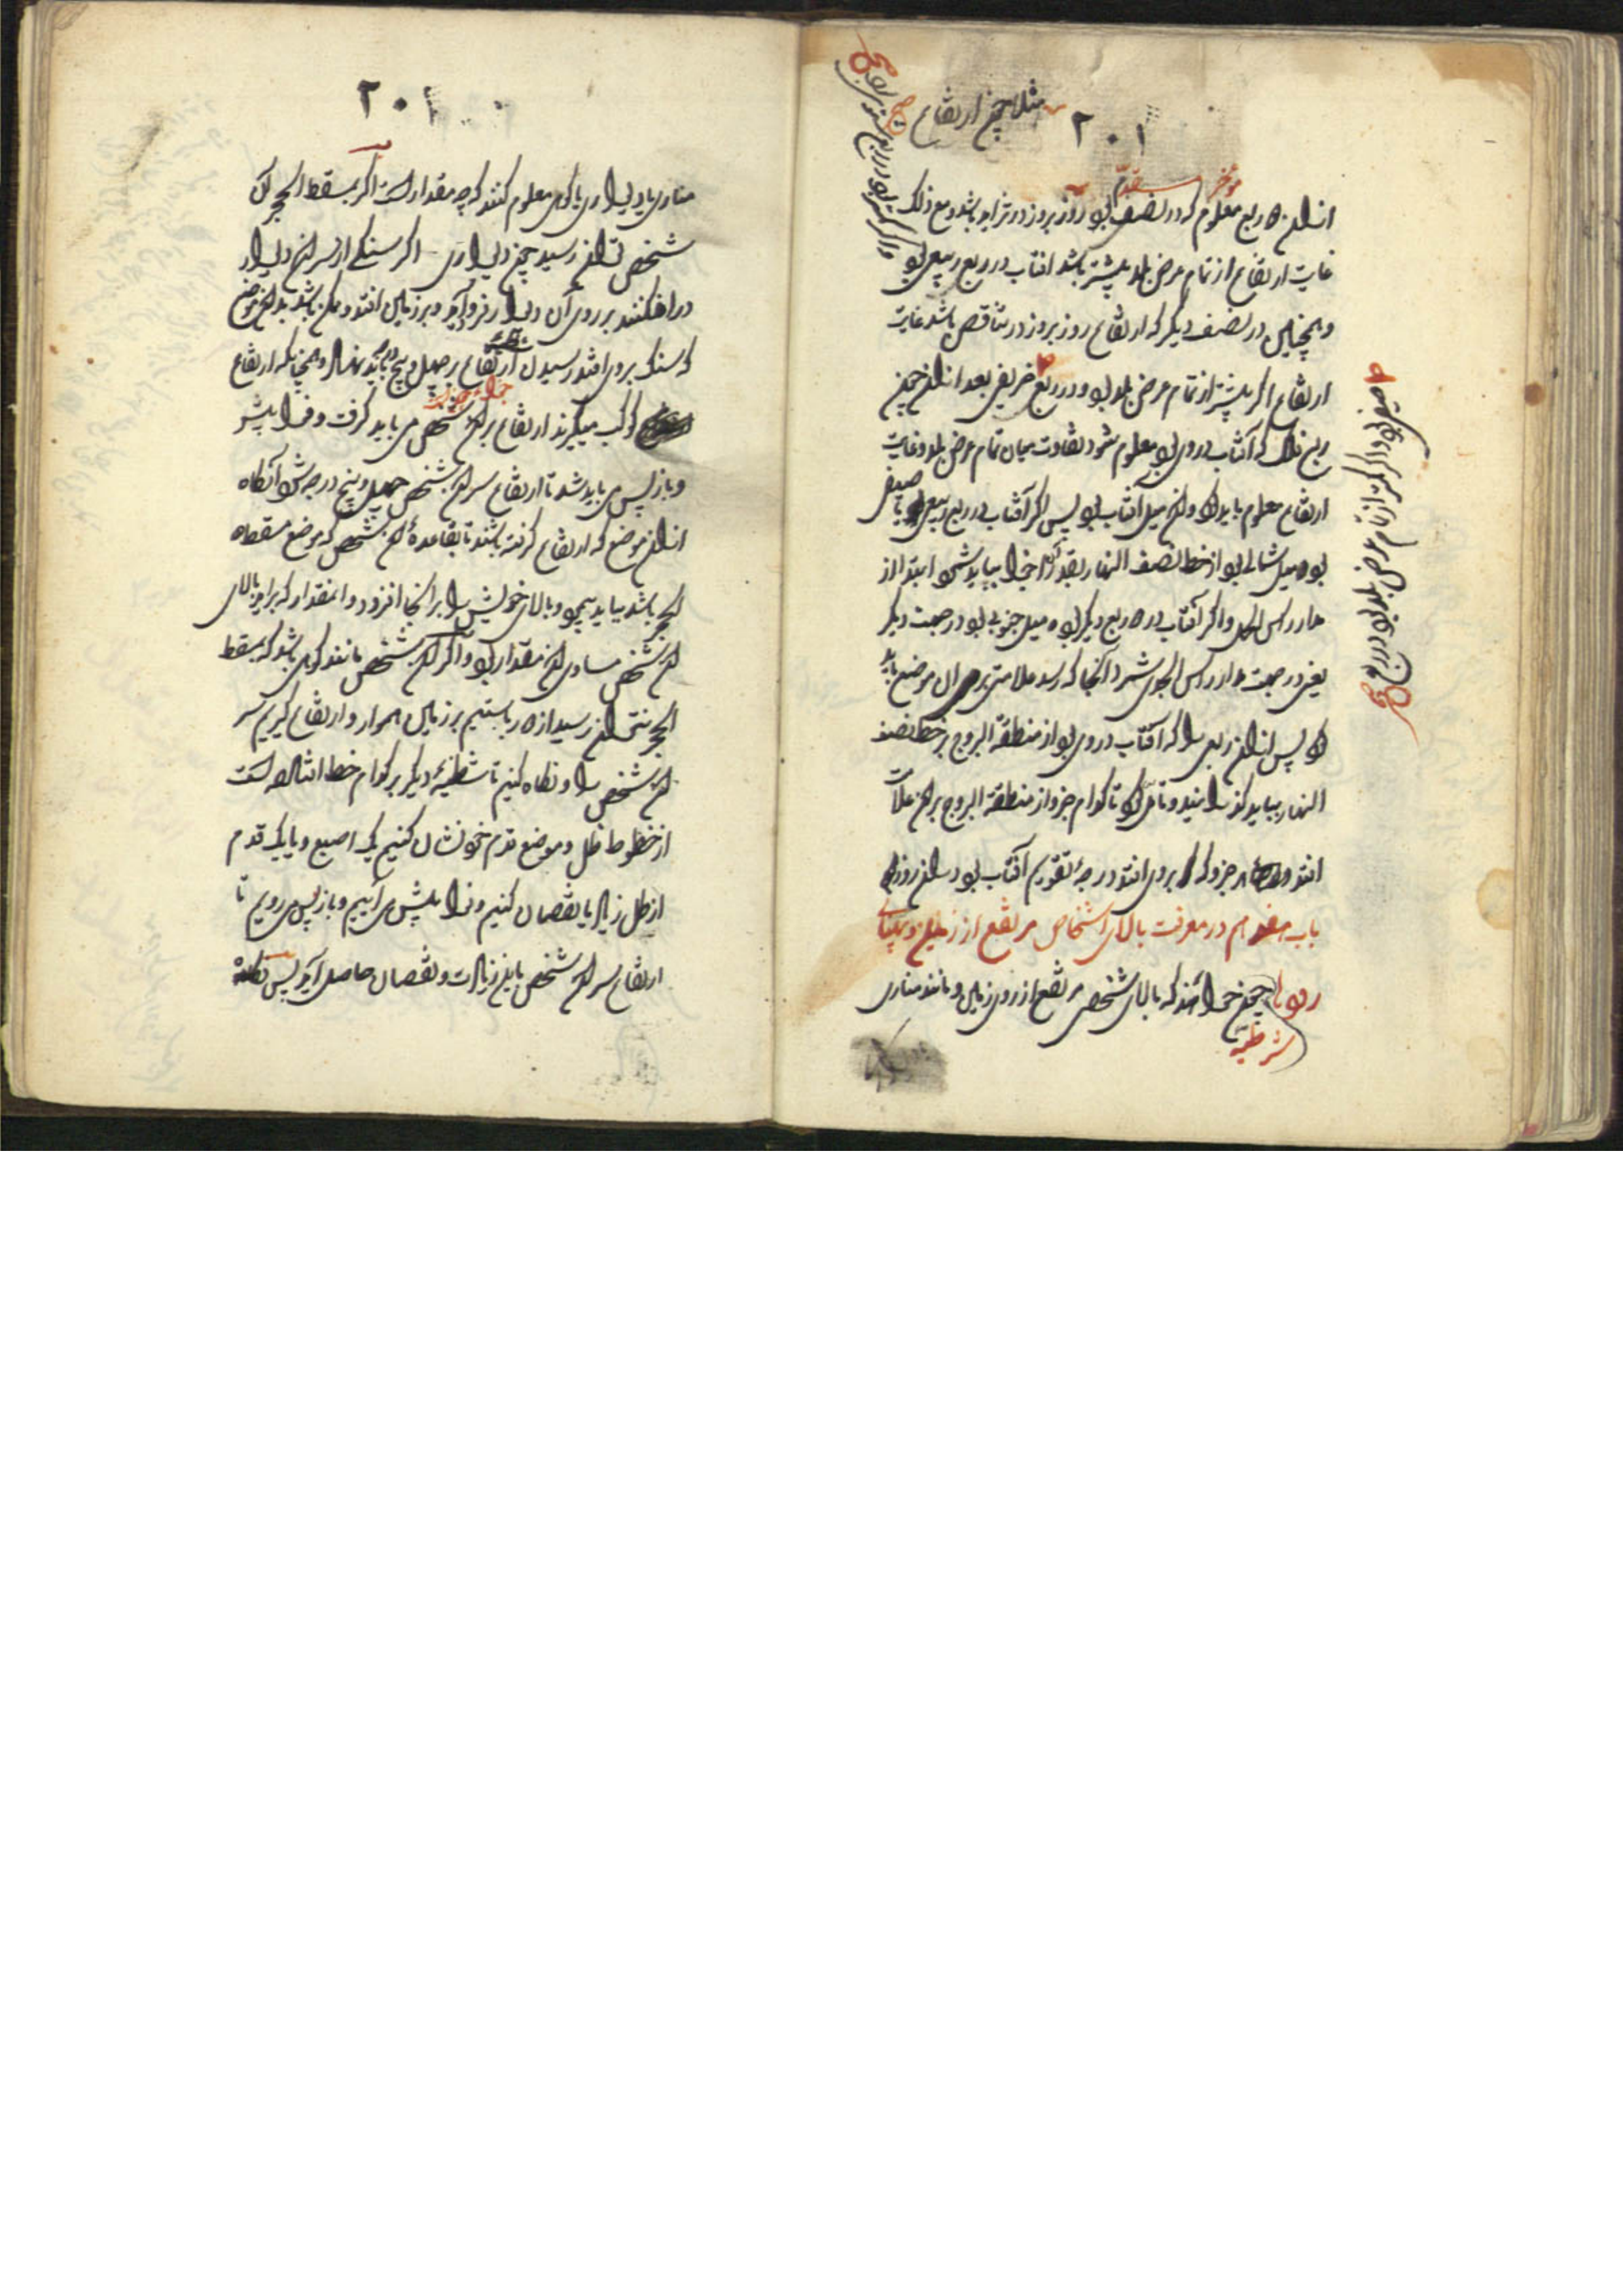 مثلا چون ارتفاع
۲۰۱
مؤخر مقدم
از ان دو ربع معلوم که در نصف بود روز بروز در تزاید باشد و مع ذلک
غایت ارتفاع از تمام عرض بلد بیشتر باشد افتاب در ربع ربیعی بود
و همچنین در نصف دیگر که ارتفاع روز بروز در تناقص باشد غایت
ارتفاع اگر بیشتر از تمام عرض بلد بود و در ربع خریفی بعد از ان چون
ربع فلک که آفتاب در وی بود معلوم شود تفاوت میان تمام عرض بلد و غایت
ارتفاع معلوم باید کرد و ان میل آفتاب بود پس اگر آفتاب در ربع ربیعی یا صیفی
بود میل شمالی بود از خط نصف النهار بقدر ان اجزا بباید شمرد ابتدا از
مدار رأس الحمل و اگر آفتاب در دو ربع دیگر بود میل جنوبی بود در جهت دیگر
یعنی در جهت مدار رأس الجدی شمرد و آنجا که رسد علامتی بر ان موضع باید
کرد پس از ان ربعی را که آفتاب در وی بود از منطقة البروج بر خط نصف
النهار بباید گذرانید و تأمل کرد تا کدام جزو از منطقة البروج بر ان علامت
افتد هر جزو که بر وی افتد درجهٔ تقویم آفتاب بود در ان روز
باب هفدهم در معرفت بالای اشخاص مرتفع از زمین و پهنای
رودها چون خواهند که بالای شخصی مرتفع از روی زمین و مانند مناری
شرطیه
صیفی بود و اگر کمتر از تمام عرض بلد بود در ربع
و اگر کمتر بود در ربع شتوی بود صح
۲۰۱
مناری یا دیواری یا کوهی معلوم کنند که چه مقدار است اگر بمسقط الحجر ان
شخص توان رسید چون دیواری اگر سنگی از سر ان دیوار
در افکنند بر روی آن دیوار فرود آید و بر زمین افتد و ممکن باشد بدان موضع
که سنگ بر وی افتد رسیدن ارتفاع بر چهل و پنج باید نهاد و همچنانکه ارتفاع
کوکب میگیرند ارتفاع بر ان شخص می باید گرفت و فرا پیش
و باز پس می باید شد تا ارتفاع سر ان شخص چهل و پنج درجه شود آنگاه
از ان موضع که ارتفاع گرفته باشند تا بقاعدهٔ ان شخص که موضع مسقط
الحجر باشد بباید پیمود و بالای خویش را بر آنجا افزود و انمقدار که براید بالای
ان شخص مساوی ان مقدار بود و اگر ان شخص مانند کوهی باشد که بمسقط
الحجر نتوان رسید از دور بایستیم بر زمین هموار و ارتفاع گیریم سر
ان شخص را و نگاه کنیم تا شظیهٔ دیگر بر کدام خط افتاده است
از خطوط ظل و موضع قدم خود نشان کنیم یک اصبع و یا یک قدم
از ظل زیاد یا نقصان کنیم و فرا پیش می آییم و باز پس می رویم تا
ارتفاع سر ان شخص باین زیادت و نقصان حاصل آید پس نگاه